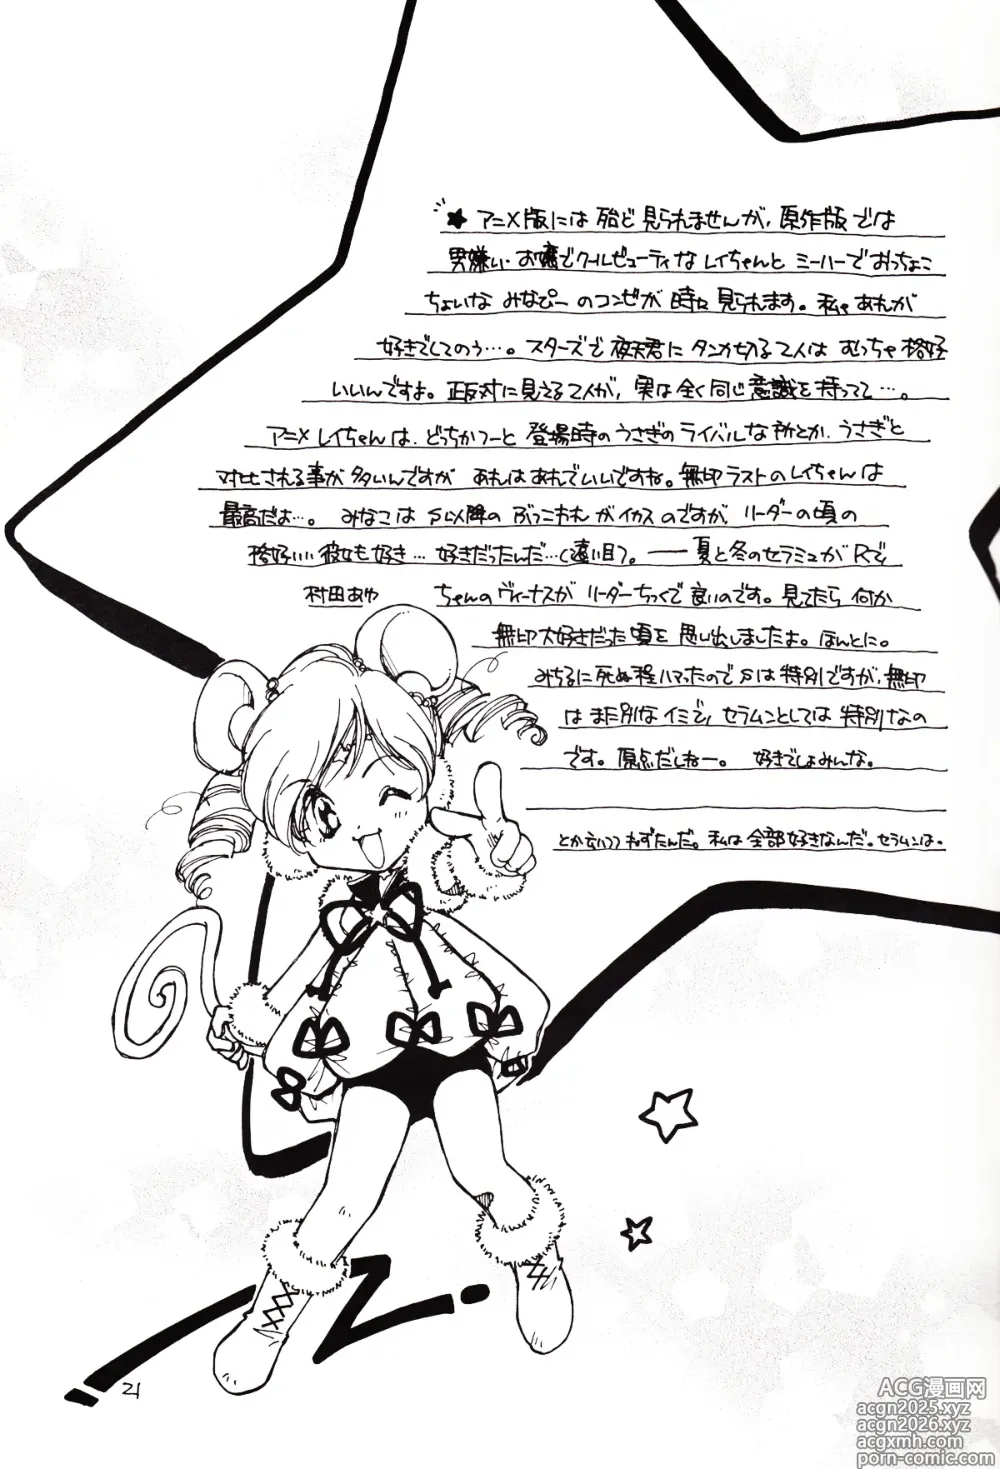 ★ アニメ版には殆ど見られませんが、原作版では
男嫌い・お嬢でクールビューティなレイちゃんと ミーハーでおっちょこ
ちょいな みなぴーのコンビが時々見られます。私ゃあれが
好きでしてのう…。スターズで夜天君にタンカ切る2人は むっちゃ格好
いいんですよ。正反対に見える2人が、実は全く同じ意識を持ってて…。
アニメレイちゃんは、どっちかつーと 登場時のうさぎのライバルな所とか、うさぎと
対比される事が多いんですが あれはあれでいいですね。無印ラストのレイちゃんは
最高だよ…。みなこは S以降の ぶっこわれがイカスのですが、リーダーの頃の
格好いい彼女も好き…好きだったんだ…く遠い目て。――夏と冬のセラミュがRで
村田あゆ
ちゃんのヴィーナスが リーダーちっくで良いのです。見てたら 何か
無印大好きだった頃を 思い出しましたよ。ほんとに。
みちるに死ぬ程ハマったのでSは特別ですが、無印
は また別なイミで、セラムンとしては 特別なの
です。原点だしねー。 好きでしょみんな。
とか言いつつ なんだ。私は全部好きなんだ。セラムンは。
21
ACG漫画网
acgn2025.xyz
acgn2026.xyz
acgxmh.com
porn-comic.com